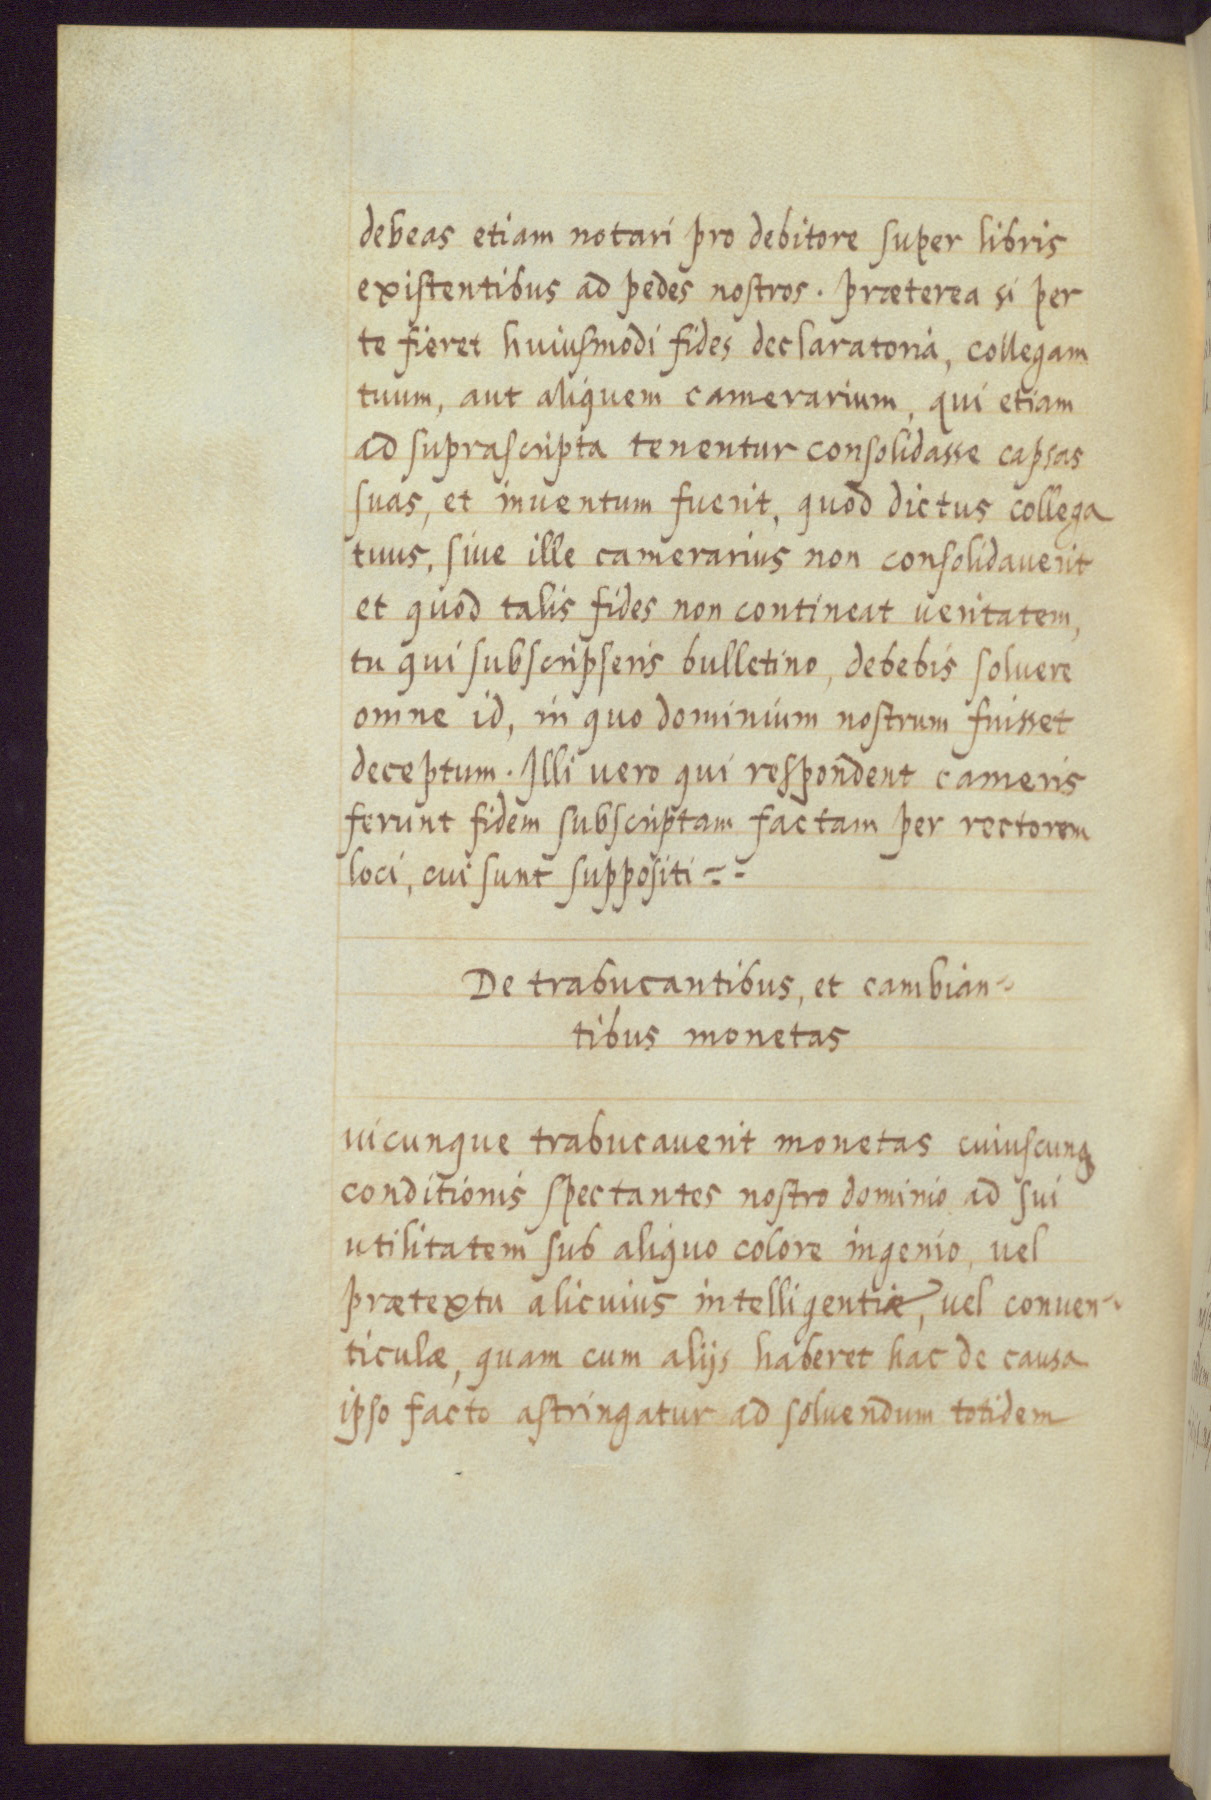 debeas etiam notari pro debitore super libris
existentibus ad pedes nostros. præterea si per
te fieret huiusmodi fides declaratoria, collegam
tuum, aut aliquem camerarium, qui etiam
ad suprascripta tenentur consolidasse capsas
suas, et inventum fuerit, quod dictus collega
tuus, sive ille camerarius non consolidaverit
et quod talis fides non contineat veritatem,
tu qui subscripseris bulletino, debebis solvere
omne id, in quo dominium nostrum fuisset
deceptum. Illi vero qui respondent cameris
ferunt fidem subscriptam factam per rectorem
loci, cui sunt suppositi
De trabucantibus, et cambian-
tibus monetas
uicunque trabucaverit monetas cuiuscunq
conditionis spectantes nostro dominio ad sui
utilitatem sub aliquo colore ingenio, vel
prætextu alicuius intelligentiæ, vel conven-
ticulæ, quam cum alijs haberet hac de causa
ipso facto astringatur ad solvendum totidem